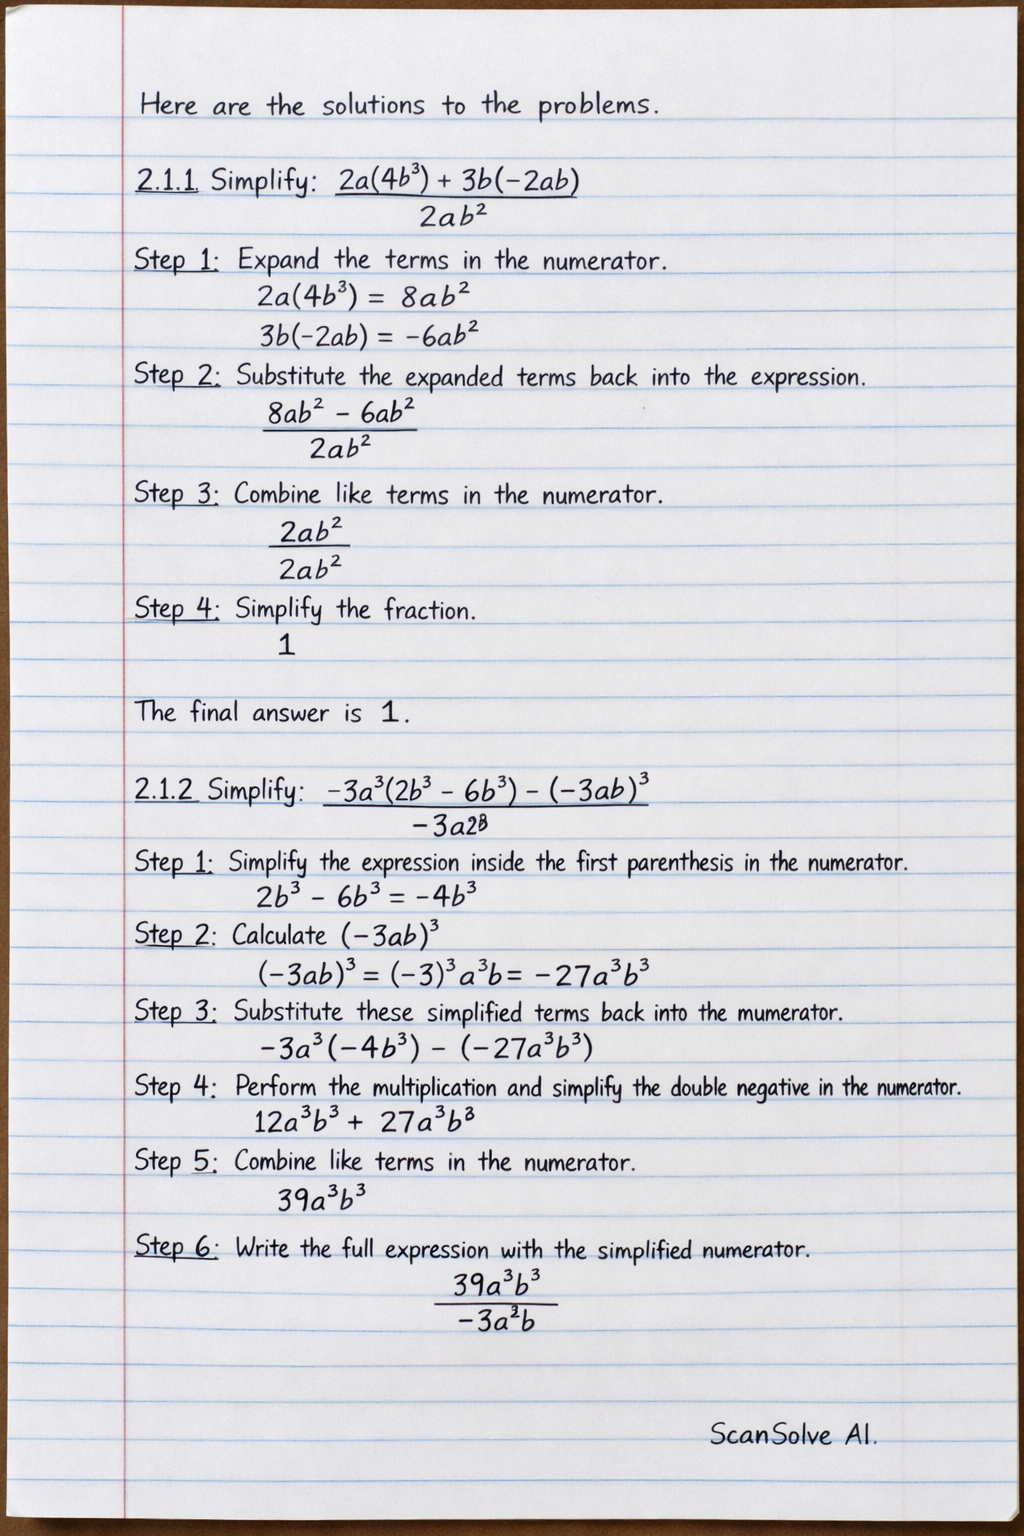 Here are the solutions to the problems.
2.1.1 Simplify: 2a(4b³) + 3b(-2ab)
2ab²
Step 1: Expand the terms in the numerator.
2a(4b³) = 8ab²
3b(-2ab) = -6ab²
Step 2: Substitute the expanded terms back into the expression.
8ab² - 6ab²
2ab²
Step 3: Combine like terms in the numerator.
2ab²
2ab²
Step 4: Simplify the fraction.
1
The final answer is 1.
2.1.2 Simplify: -3a³(2b³ - 6b³) - (-3ab)³
-3a2B
Step 1: Simplify the expression inside the first parenthesis in the numerator.
2b³ - 6b³ = -4b³
Step 2: Calculate (-3ab)³
(-3ab)³ = (-3)³a³b = -27a³b³
Step 3: Substitute these simplified terms back into the mumerator.
-3a³(-4b³) - (-27a³b³)
Step 4: Perform the multiplication and simplify the double negative in the numerator.
12a³b³ + 27a³b³
Step 5: Combine like terms in the numerator.
39a³b³
Step 6: Write the full expression with the simplified numerator.
39a³b³
-3a²b
ScanSolve AI.